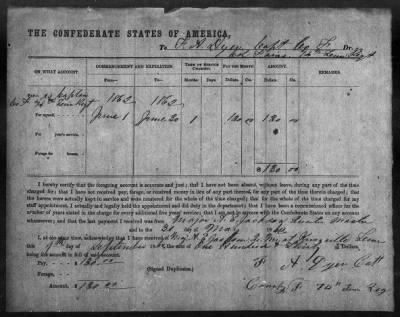 THE CONFEDERATE STATES OF AMERICA,
To F. A. Dyer, Capt Co F. Dr.
ON WHAT ACCOUNT. COMMENCEMENT AND EXPIRATION. TERM OF SERVICE CHARGED. PAY PER MONTH. AMOUNT. REMARKS.
From— To— Months Days Dollars. Cts. Dollars. Cts.
Co. F. 74th Tenn Regt 1862 1862
For myself, June 1 June 30 1 130 00 130 00
For years' service,
Forage for horses,
$130 00
I hereby certify that the foregoing account is accurate and just; that I have not been absent, without leave, during any part of the time
charged for; that I have not received pay, forage, or received money in lieu of any part thereof, for any part of the time therein charged; that
the horses were actually kept in service and were mustered for the whole of the time charged; that for the whole of the time charged for my
staff appointment, I actually and legally held the appointment and did duty in the department; that I have been a commissioned officer for the
number of years stated in the charge for every additional five years' service; that I am not in arrears with the Confederate States on any account
whatsoever; and that the last payment I received was from Major
and to the 30 day of May
I, at the same time, acknowledge that I have received of Maj A. E. Jackson
this day of September 186 the sum of One Hundred & Thirty Dollars,
being the amount in full of said account.
Pay, $130.00
Forage, (Signed Duplicates.)
Amount, $130.00
F A Dyer Capt
F 74th Tenn Reg